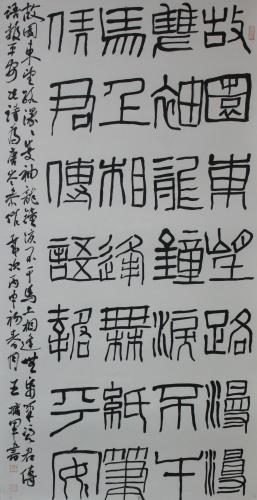 故園東望路漫漫
雙袖龍鐘淚不干
馬上相逢無紙筆
凭君傳語報平安
故園東望路漫〻雙袖龍鐘淚不干馬上相逢無紙筆凭君傳
語報平安 岑參作 歲次丙申初春月 王軍書